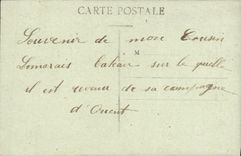 CARTE POSTALE
Souvenir de mon Cousin
M
Lomorais bateau sur le quelle
il est revenu de sa campagne
d'Orient